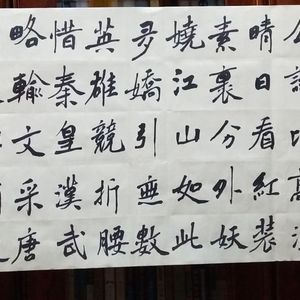 高
晴日看紅裝
素裹分外妖
嬈江山如此
多嬌引無數
英雄競折腰
惜秦皇漢武
略輸文采唐